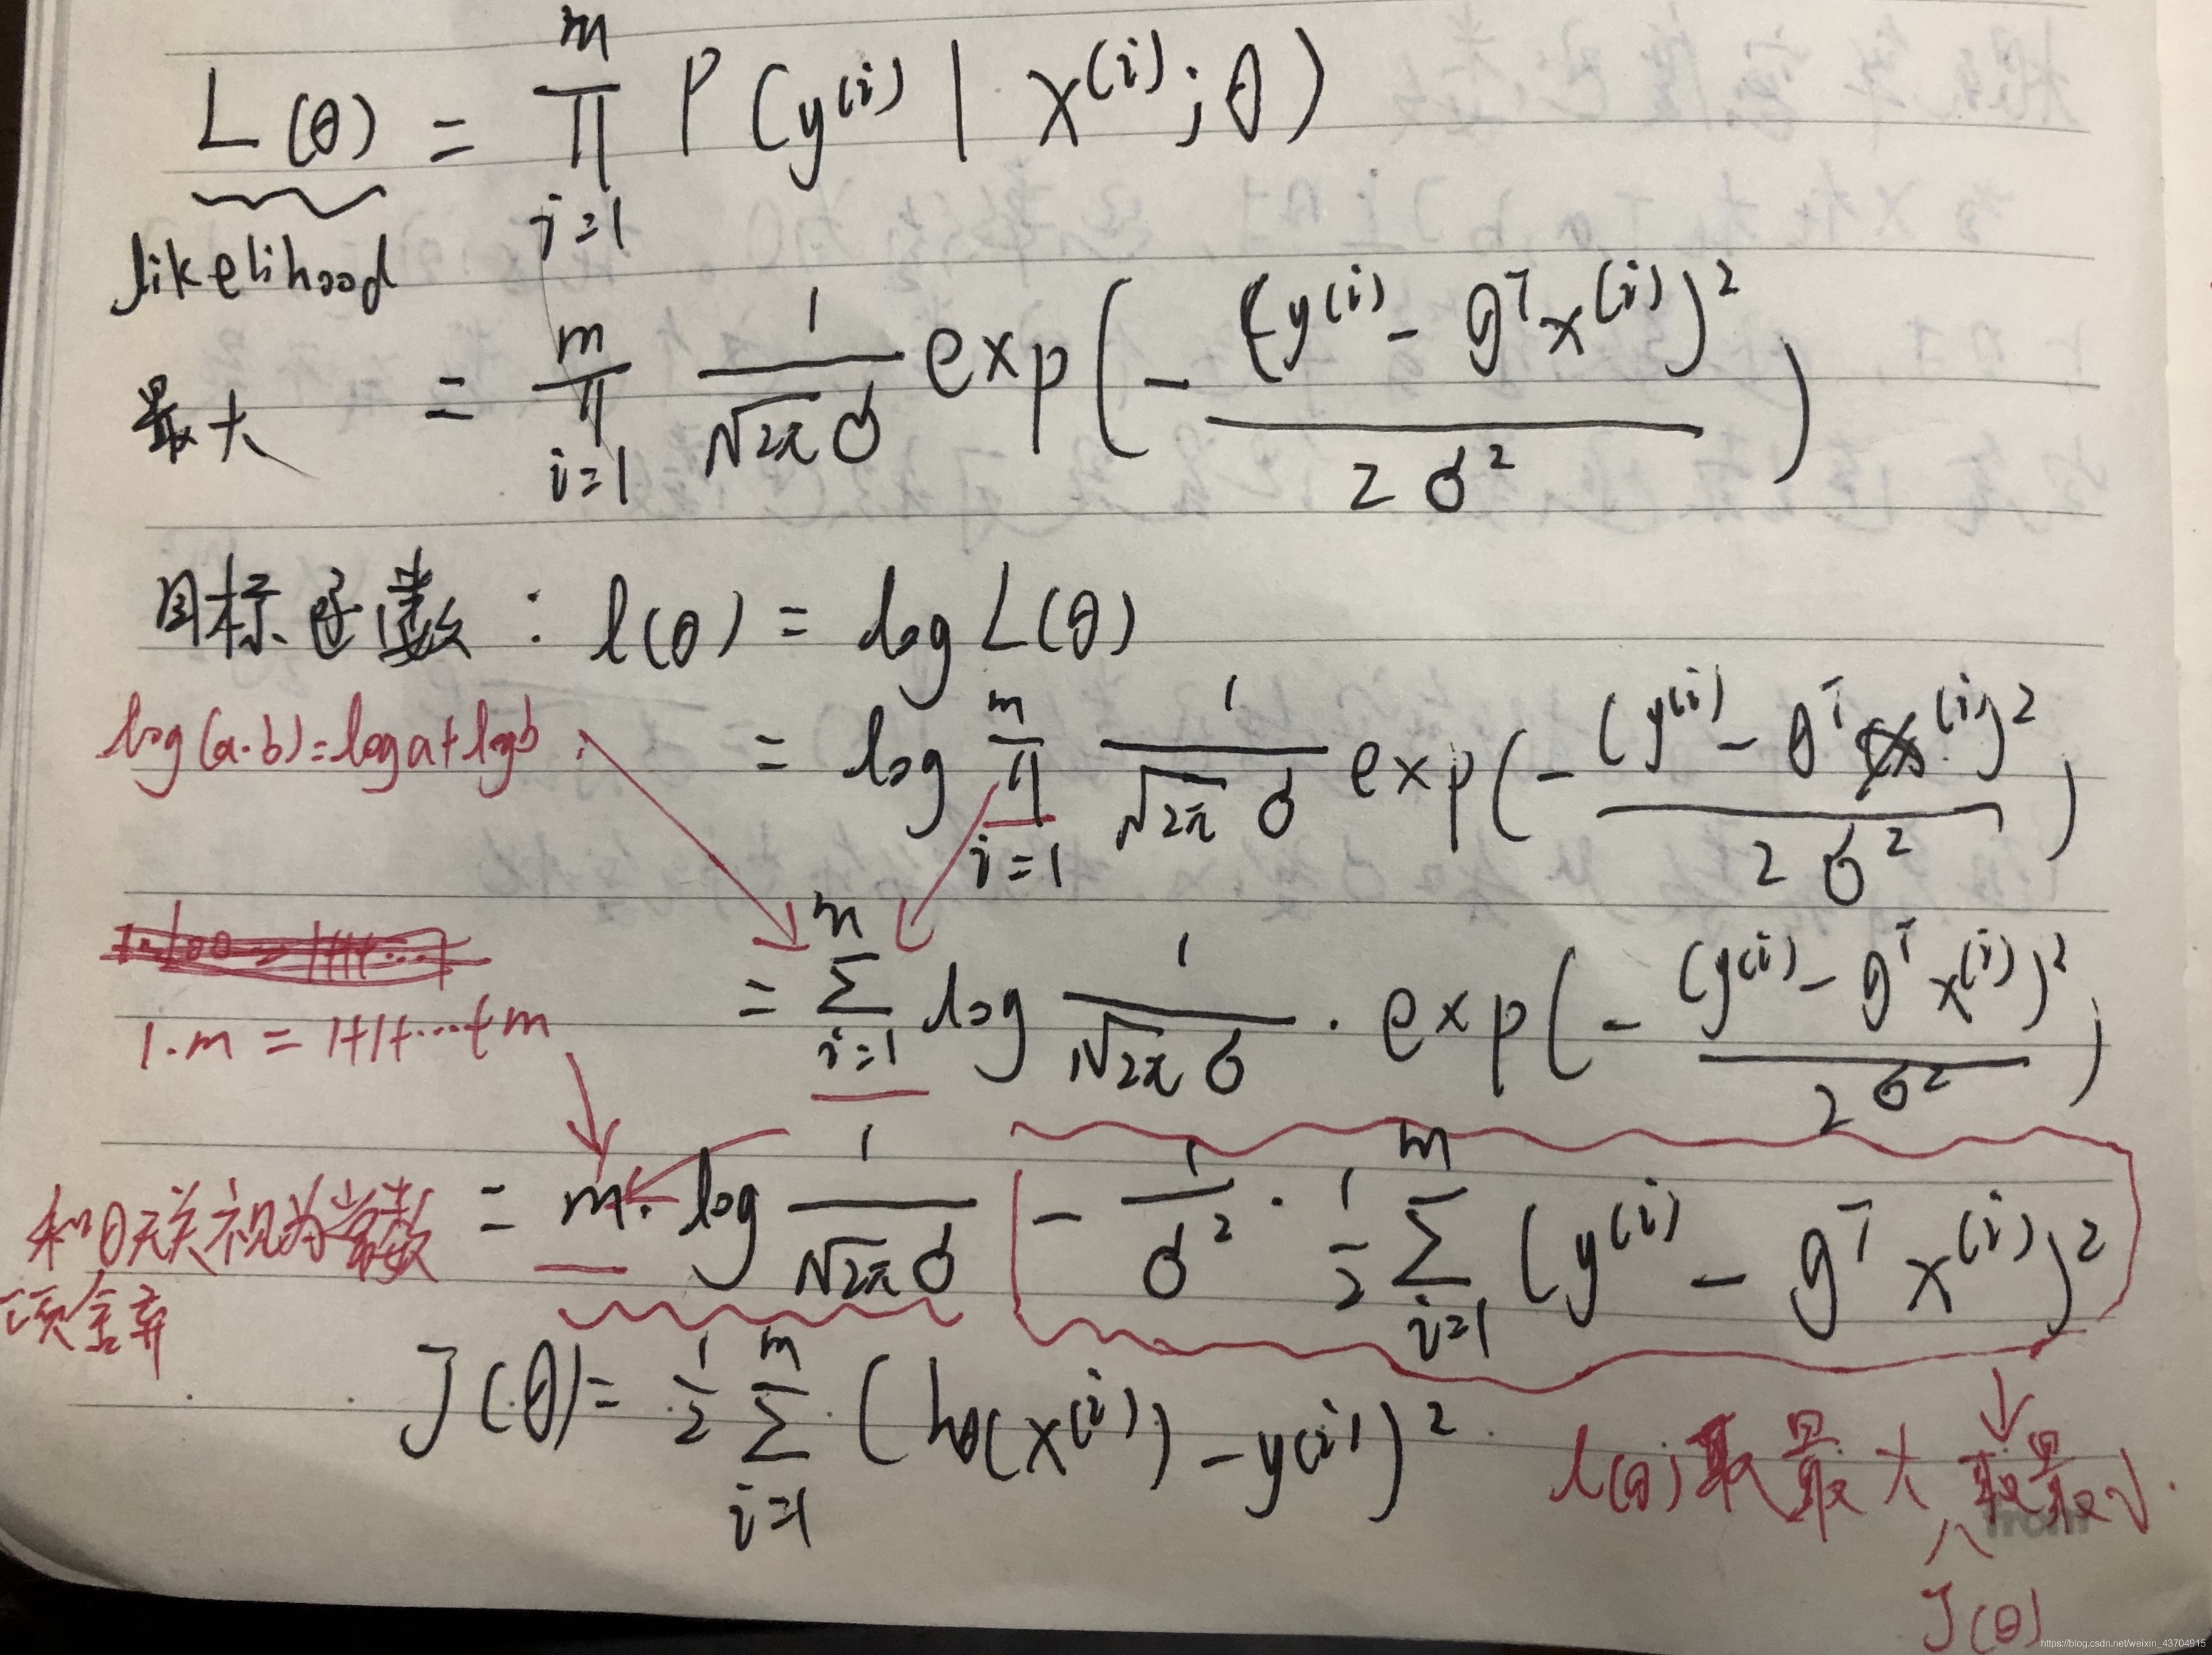 L(θ) = ∏_{i=1}^{m} P(y^{(i)} | x^{(i)}; θ)
likelihood
最大 = ∏_{i=1}^{m} \frac{1}{\sqrt{2π}σ} exp(-\frac{(y^{(i)} - θ^T x^{(i)})^2}{2σ^2})
目标函数: l(θ) = log L(θ)
log(a·b)=log a+log b
= log ∏_{i=1}^{m} \frac{1}{\sqrt{2π}σ} exp(-\frac{(y^{(i)} - θ^T x^{(i)})^2}{2σ^2})
= ∑_{i=1}^{m} log \frac{1}{\sqrt{2π}σ} · exp(-\frac{(y^{(i)} - θ^T x^{(i)})^2}{2σ^2})
1·m = 1+1+···+m
= m· log \frac{1}{\sqrt{2π}σ} - \frac{1}{σ^2} · \frac{1}{2} ∑_{i=1}^{m} (y^{(i)} - θ^T x^{(i)})^2
和θ无关视为常数
项舍弃
J(θ) = \frac{1}{2} ∑_{i=1}^{m} (h_θ(x^{(i)}) - y^{(i)})^2
l(θ)取最大 取最小
J(θ)
https://blog.csdn.net/weixin_43704915